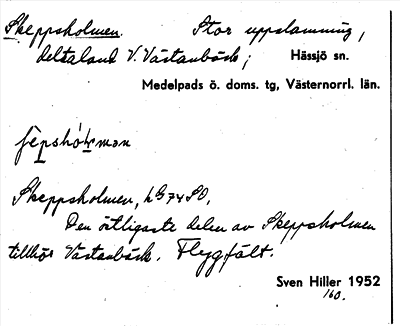 Skeppsholmen. Stor uppslamning,
deltaland V. Västanbäck; Hässjö sn.
Medelpads ö. doms. tg, Västernorrl. län.
Skeppsholmen,
Den östligaste delen av Skeppsholmen
tillhör Västanbäck. Flygfält.
Sven Hiller 1952
160.